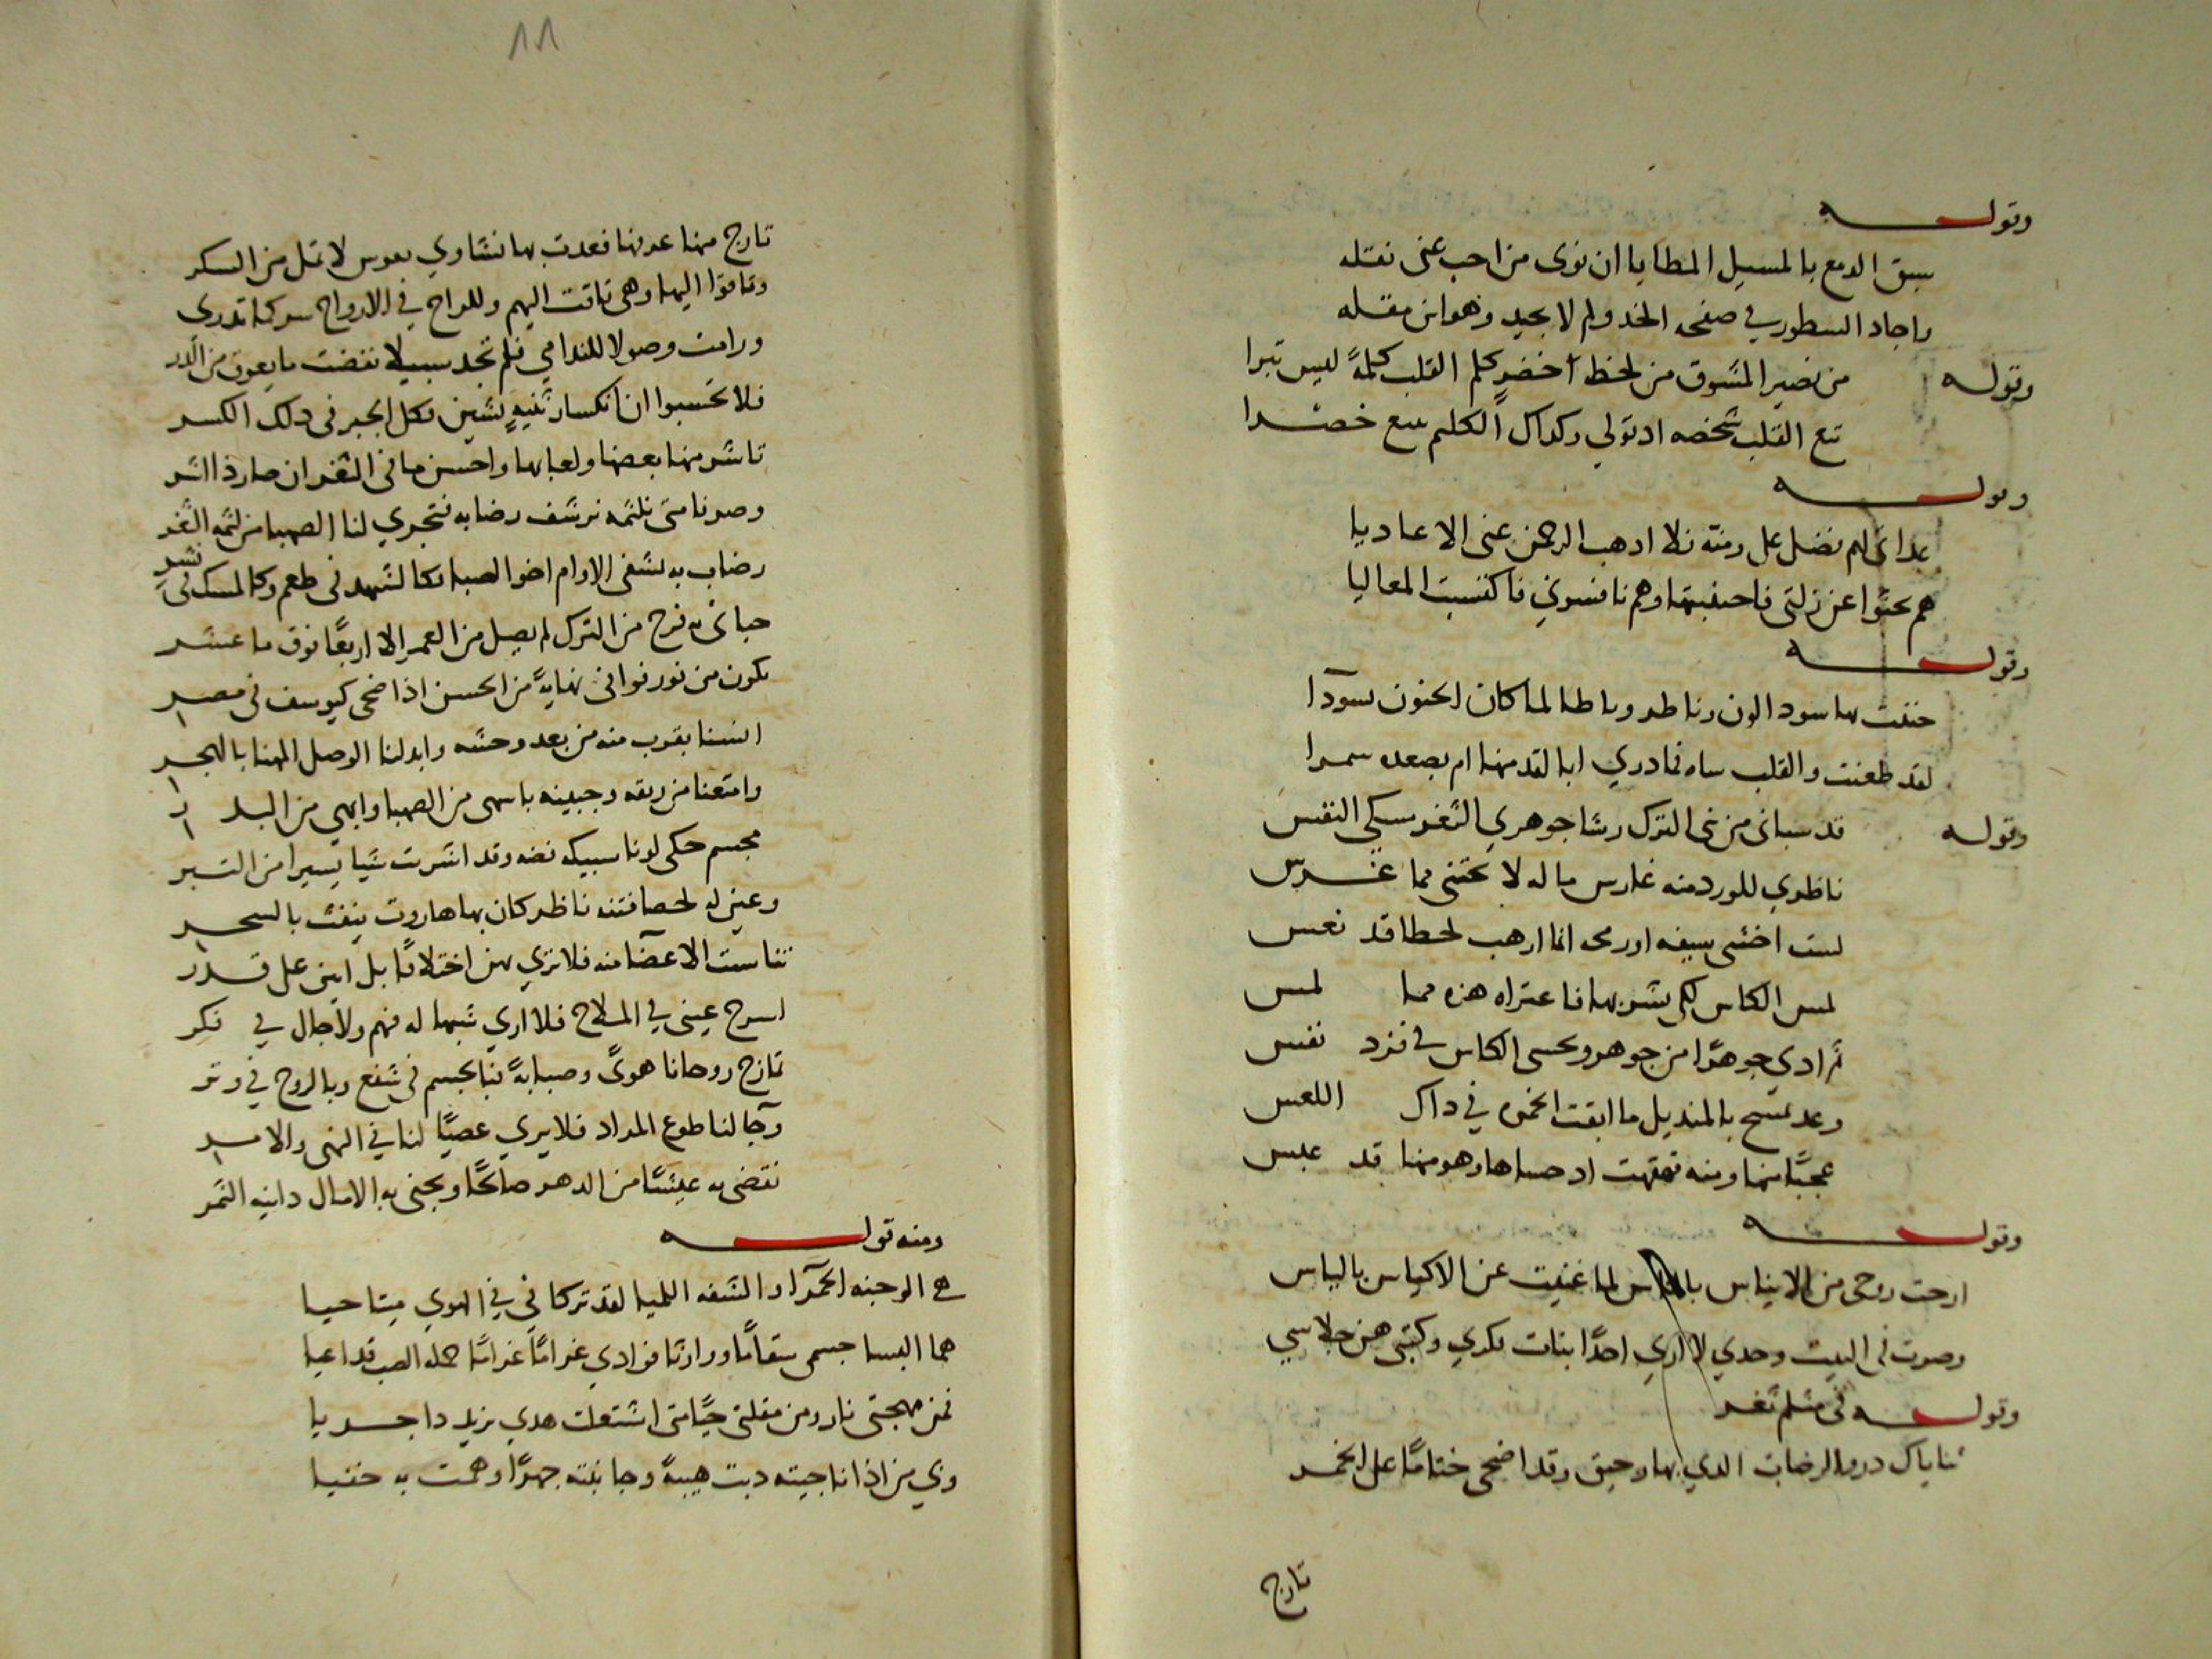 وقوله
سبق الدمع بالمسيل المطايا ان نوى من احب عنى نقله
واجاد السطور في صفحه الخد ولم لا يجيد وهو ابن مقله
وقوله من نصير المشوق من لحظ اخضر كلم القلب كلمةً ليس تبرا
تبع القلب شخصه اد تولي وكداك الكلم يتبع خضرا
وقوله
عداتى لهم فضل على ومنة فلا ادهب الرحمن عنى الاعاديا
هم بحثوا عن زلتى فاجتنبتها وهم نافسوني فاكتسبت المعاليا
وقوله
لقد طعنت والقلب ساه فما دري ابا لقد منها ام بصعده سمرا
وقوله قد سبانى من بنى الترك رشا جوهري الثغر مسكي النفس
ناظري للورد منه غارس ما له لا يجتنى مما غرس
لست اخشى سيفه او رمحه انما ارهب لحظا قد نعس
لمس الكاس لكى يشربها فاعتراه هزه مما لمس
وغد تمسح بالمنديل ما ابقت الخمره في داك اللعس
عجبًا منها ومنه قهقهت اد حساها وهو منها قد عبس
وقوله
ارحت روحى من الايناس بالناس لما غنيت عن الاكياس بالياس
وصرت فى البيت وحدي لا اري احدًا بنات فكري وكتبى هن جلاسي
وقوله فى مثلم ثغر
ثناياك درو الرضاب الدي بها رحيق وقد اضحى ختامًا على الخمر
تارج
١١
تارج منها عرفها فغدت بها نشاوي نفوس لا تمل من السكر
وتاقوا اليها وهى تاقت اليهم وللراح في الارواح سر كما تدرى
ورامت وصولا للندامي فلم تجد سبيلا نفضت ما يعوق من الدر
فلا تحسبوا ان انكسار ثنيهٍ يشين فكل الجبر فى دلك الكسر
تاشر منها بعضها ولعابها واحسن ما فى الثغر ان صار ذا اشر
وصرنا متى نلثمه نرشف رضابه فتجري لنا الصهبا من لثمه الثغر
رضاب به يشفى الاوام اخو الصبا فكالشهد فى طعم وكالمسك فى نشر
حبانى به فرح من الترك لم يصل من العمر الا اربعًا فوق ما عشر
تكون من نور فوافى نهايةً من الحسن اذ اضحى كيوسف فى مصر
انسنا بقرب منه من بعد وحشه وابدلنا الوصل المهنا بالهجر
وامتعنا من ريقه وجبينه باسمى من الصهبا وابهي من البدر
مجسم حكى لونا سبيكه فضه وقد اشربت شيا يسيرا من التبر
وعين له لحصا فتنه ناظر كان بها هاروت ينفث بالسحر
تناسبت الاعضا منه فلا تري بهن اختلافًا بل اتين على قدر
اسرح عينى في الملاح فلا اري شبيها له فيهم ولا جال في فكر
تمازج روحانا هوىً وصبابةً فبالجسم فى شفع وبالروح في وتر
وجا لنا طوع المراد فلا يري عصيًا لنا في النهى والامر
نقضى به عيشًا من الدهر صالحًا ويجنى به الامال دانيه الثمر
ومنه قوله
هي الوجنه الحمرا والشفه اللميا لقد تركانى في الهوي ميتا حيا
هما البسا جسمى سقامًا وزادتا فوادي غرامًا غرامًا حمله الصب قد اعيا
فمن مهجتى نار ومن مقلتى حيًا متى اشتعلت هدي يزيد دا جريا
وبي من اذا ناجيته دبت هيبةً وجانبته جهرًا وهمت به خفيا